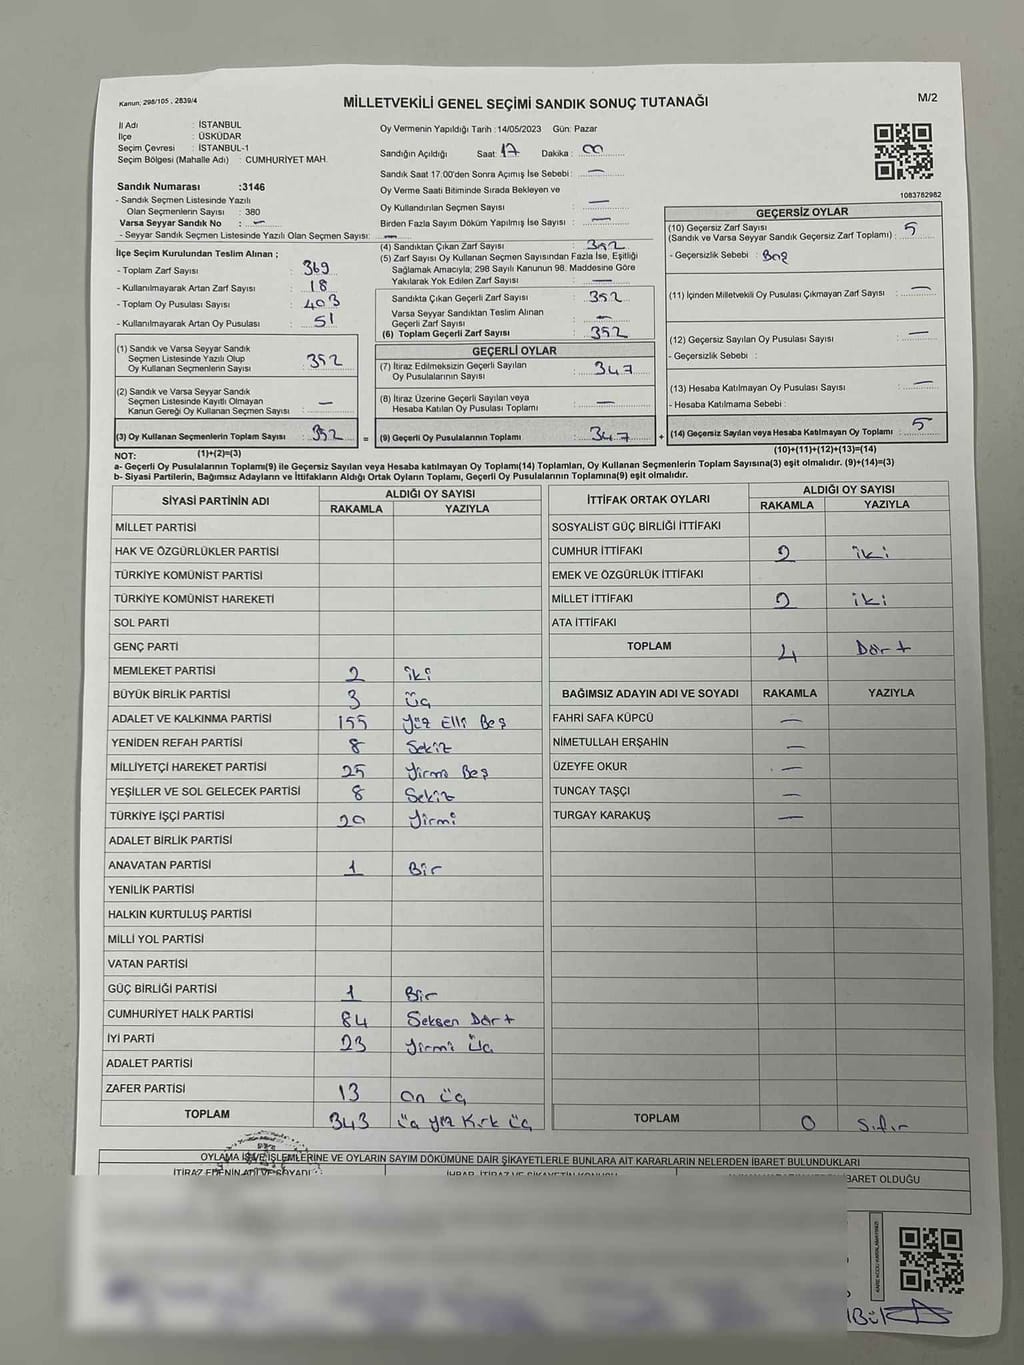 Kanun; 298/105 , 2839/4
MİLLETVEKİLİ GENEL SEÇİMİ SANDIK SONUÇ TUTANAĞI
M/2
İl Adı : İSTANBUL
İlçe : ÜSKÜDAR
Seçim Çevresi : İSTANBUL-1
Seçim Bölgesi (Mahalle Adı) : CUMHURİYET MAH.
Sandık Numarası :3146
- Sandık Seçmen Listesinde Yazılı
Olan Seçmenlerin Sayısı : 380
Varsa Seyyar Sandık No : —
- Seyyar Sandık Seçmen Listesinde Yazılı Olan Seçmen Sayısı: —
İlçe Seçim Kurulundan Teslim Alınan ;
- Toplam Zarf Sayısı : 369
- Kullanılmayarak Artan Zarf Sayısı : 18
- Toplam Oy Pusulası Sayısı : 403
- Kullanılmayarak Artan Oy Pusulası : 51
(1) Sandık ve Varsa Seyyar Sandık
Seçmen Listesinde Yazılı Olup
Oy Kullanan Seçmenlerin Sayısı : 352
(2) Sandık ve Varsa Seyyar Sandık
Seçmen Listesinde Kayıtlı Olmayan
Kanun Gereği Oy Kullanan Seçmen Sayısı : —
(3) Oy Kullanan Seçmenlerin Toplam Sayısı : 352
Oy Vermenin Yapıldığı Tarih :14/05/2023 Gün: Pazar
Sandığın Açıldığı Saat: 17 Dakika : 00
Sandık Saat 17.00'den Sonra Açımış İse Sebebi : —
Oy Verme Saati Bitiminde Sırada Bekleyen ve
Oy Kullandırılan Seçmen Sayısı : —
Birden Fazla Sayım Döküm Yapılmış İse Sayısı : —
(4) Sandıktan Çıkan Zarf Sayısı : 352
(5) Zarf Sayısı Oy Kullanan Seçmen Sayısından Fazla İse, Eşitliği
Sağlamak Amacıyla; 298 Sayılı Kanunun 98. Maddesine Göre
Yakılarak Yok Edilen Zarf Sayısı : —
Sandıkta Çıkan Geçerli Zarf Sayısı : 352
Varsa Seyyar Sandıktan Teslim Alınan
Geçerli Zarf Sayısı : —
(6) Toplam Geçerli Zarf Sayısı : 352
GEÇERLİ OYLAR
(7) İtiraz Edilmeksizin Geçerli Sayılan
Oy Pusulalarının Sayısı : 347
(8) İtiraz Üzerine Geçerli Sayılan veya
Hesaba Katılan Oy Pusulası Toplamı : —
= (9) Geçerli Oy Pusulalarının Toplamı : 347
1083762982
GEÇERSİZ OYLAR
(10) Geçersiz Zarf Sayısı
(Sandık ve Varsa Seyyar Sandık Geçersiz Zarf Toplamı) : 5
- Geçersizlik Sebebi : Boş
(11) İçinden Milletvekili Oy Pusulası Çıkmayan Zarf Sayısı : —
(12) Geçersiz Sayılan Oy Pusulası Sayısı : —
- Geçersizlik Sebebi :
(13) Hesaba Katılmayan Oy Pusulası Sayısı : —
- Hesaba Katılmama Sebebi :
+ (14) Geçersiz Sayılan veya Hesaba Katılmayan Oy Toplamı : 5
NOT: (1)+(2)=(3) (10)+(11)+(12)+(13)=(14)
a- Geçerli Oy Pusulalarının Toplamı(9) ile Geçersiz Sayılan veya Hesaba katılmayan Oy Toplamı(14) Toplamları, Oy Kullanan Seçmenlerin Toplam Sayısına(3) eşit olmalıdır. (9)+(14)=(3)
b- Siyasi Partilerin, Bağımsız Adayların ve İttifakların Aldığı Ortak Oyların Toplamı, Geçerli Oy Pusulalarının Toplamına(9) eşit olmalıdır.
SİYASİ PARTİNİN ADI ALDIĞI OY SAYISI
RAKAMLA YAZIYLA
MİLLET PARTİSİ
HAK VE ÖZGÜRLÜKLER PARTİSİ
TÜRKİYE KOMÜNİST PARTİSİ
TÜRKİYE KOMÜNİST HAREKETİ
SOL PARTİ
GENÇ PARTİ
MEMLEKET PARTİSİ 2 iki
BÜYÜK BİRLİK PARTİSİ 3 Üç
ADALET VE KALKINMA PARTİSİ 155 Yüz Elli Beş
YENİDEN REFAH PARTİSİ 8 Sekiz
MİLLİYETÇİ HAREKET PARTİSİ 25 Yirmi Beş
YEŞİLLER VE SOL GELECEK PARTİSİ 8 Sekiz
TÜRKİYE İŞÇİ PARTİSİ 20 Yirmi
ADALET BİRLİK PARTİSİ
ANAVATAN PARTİSİ 1 Bir
YENİLİK PARTİSİ
HALKIN KURTULUŞ PARTİSİ
MİLLİ YOL PARTİSİ
VATAN PARTİSİ
GÜÇ BİRLİĞİ PARTİSİ 1 Bir
CUMHURİYET HALK PARTİSİ 84 Seksen Dört
İYİ PARTİ 23 Yirmi Üç
ADALET PARTİSİ
ZAFER PARTİSİ 13 On üç
TOPLAM 343 üç yüz Kırk üç
İTTİFAK ORTAK OYLARI ALDIĞI OY SAYISI
RAKAMLA YAZIYLA
SOSYALİST GÜÇ BİRLİĞİ İTTİFAKI
CUMHUR İTTİFAKI 2 iki
EMEK VE ÖZGÜRLÜK İTTİFAKI
MİLLET İTTİFAKI 2 iki
ATA İTTİFAKI
TOPLAM 4 Dört
BAĞIMSIZ ADAYIN ADI VE SOYADI RAKAMLA YAZIYLA
FAHRİ SAFA KÜPCÜ —
NİMETULLAH ERŞAHİN —
ÜZEYFE OKUR —
TUNCAY TAŞÇI —
TURGAY KARAKUŞ —
TOPLAM 0 Sıfır
OYLAMA İŞ VE İŞLEMLERİNE VE OYLARIN SAYIM DÖKÜMÜNE DAİR ŞİKAYETLERLE BUNLARA AİT KARARLARIN NELERDEN İBARET BULUNDUKLARI
İTİRAZ EDENİN ADI VE SOYADI İHBAR, İTİRAZ VE ŞİKAYETİN KONUSU BARET OLDUĞU